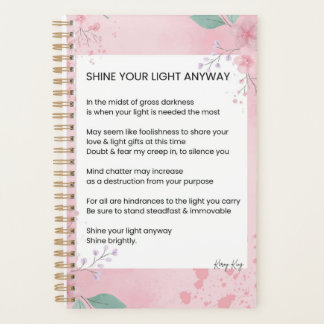 SHINE YOUR LIGHT ANYWAY
In the midst of gross darkness
is when your light is needed the most
May seem like foolishness to share your
love & light gifts at this time
Doubt & fear my creep in, to silence you
Mind chatter may increase
as a destruction from your purpose
For all are hindrances to the light you carry
Be sure to stand steadfast & immovable
Shine your light anyway
Shine brightly.